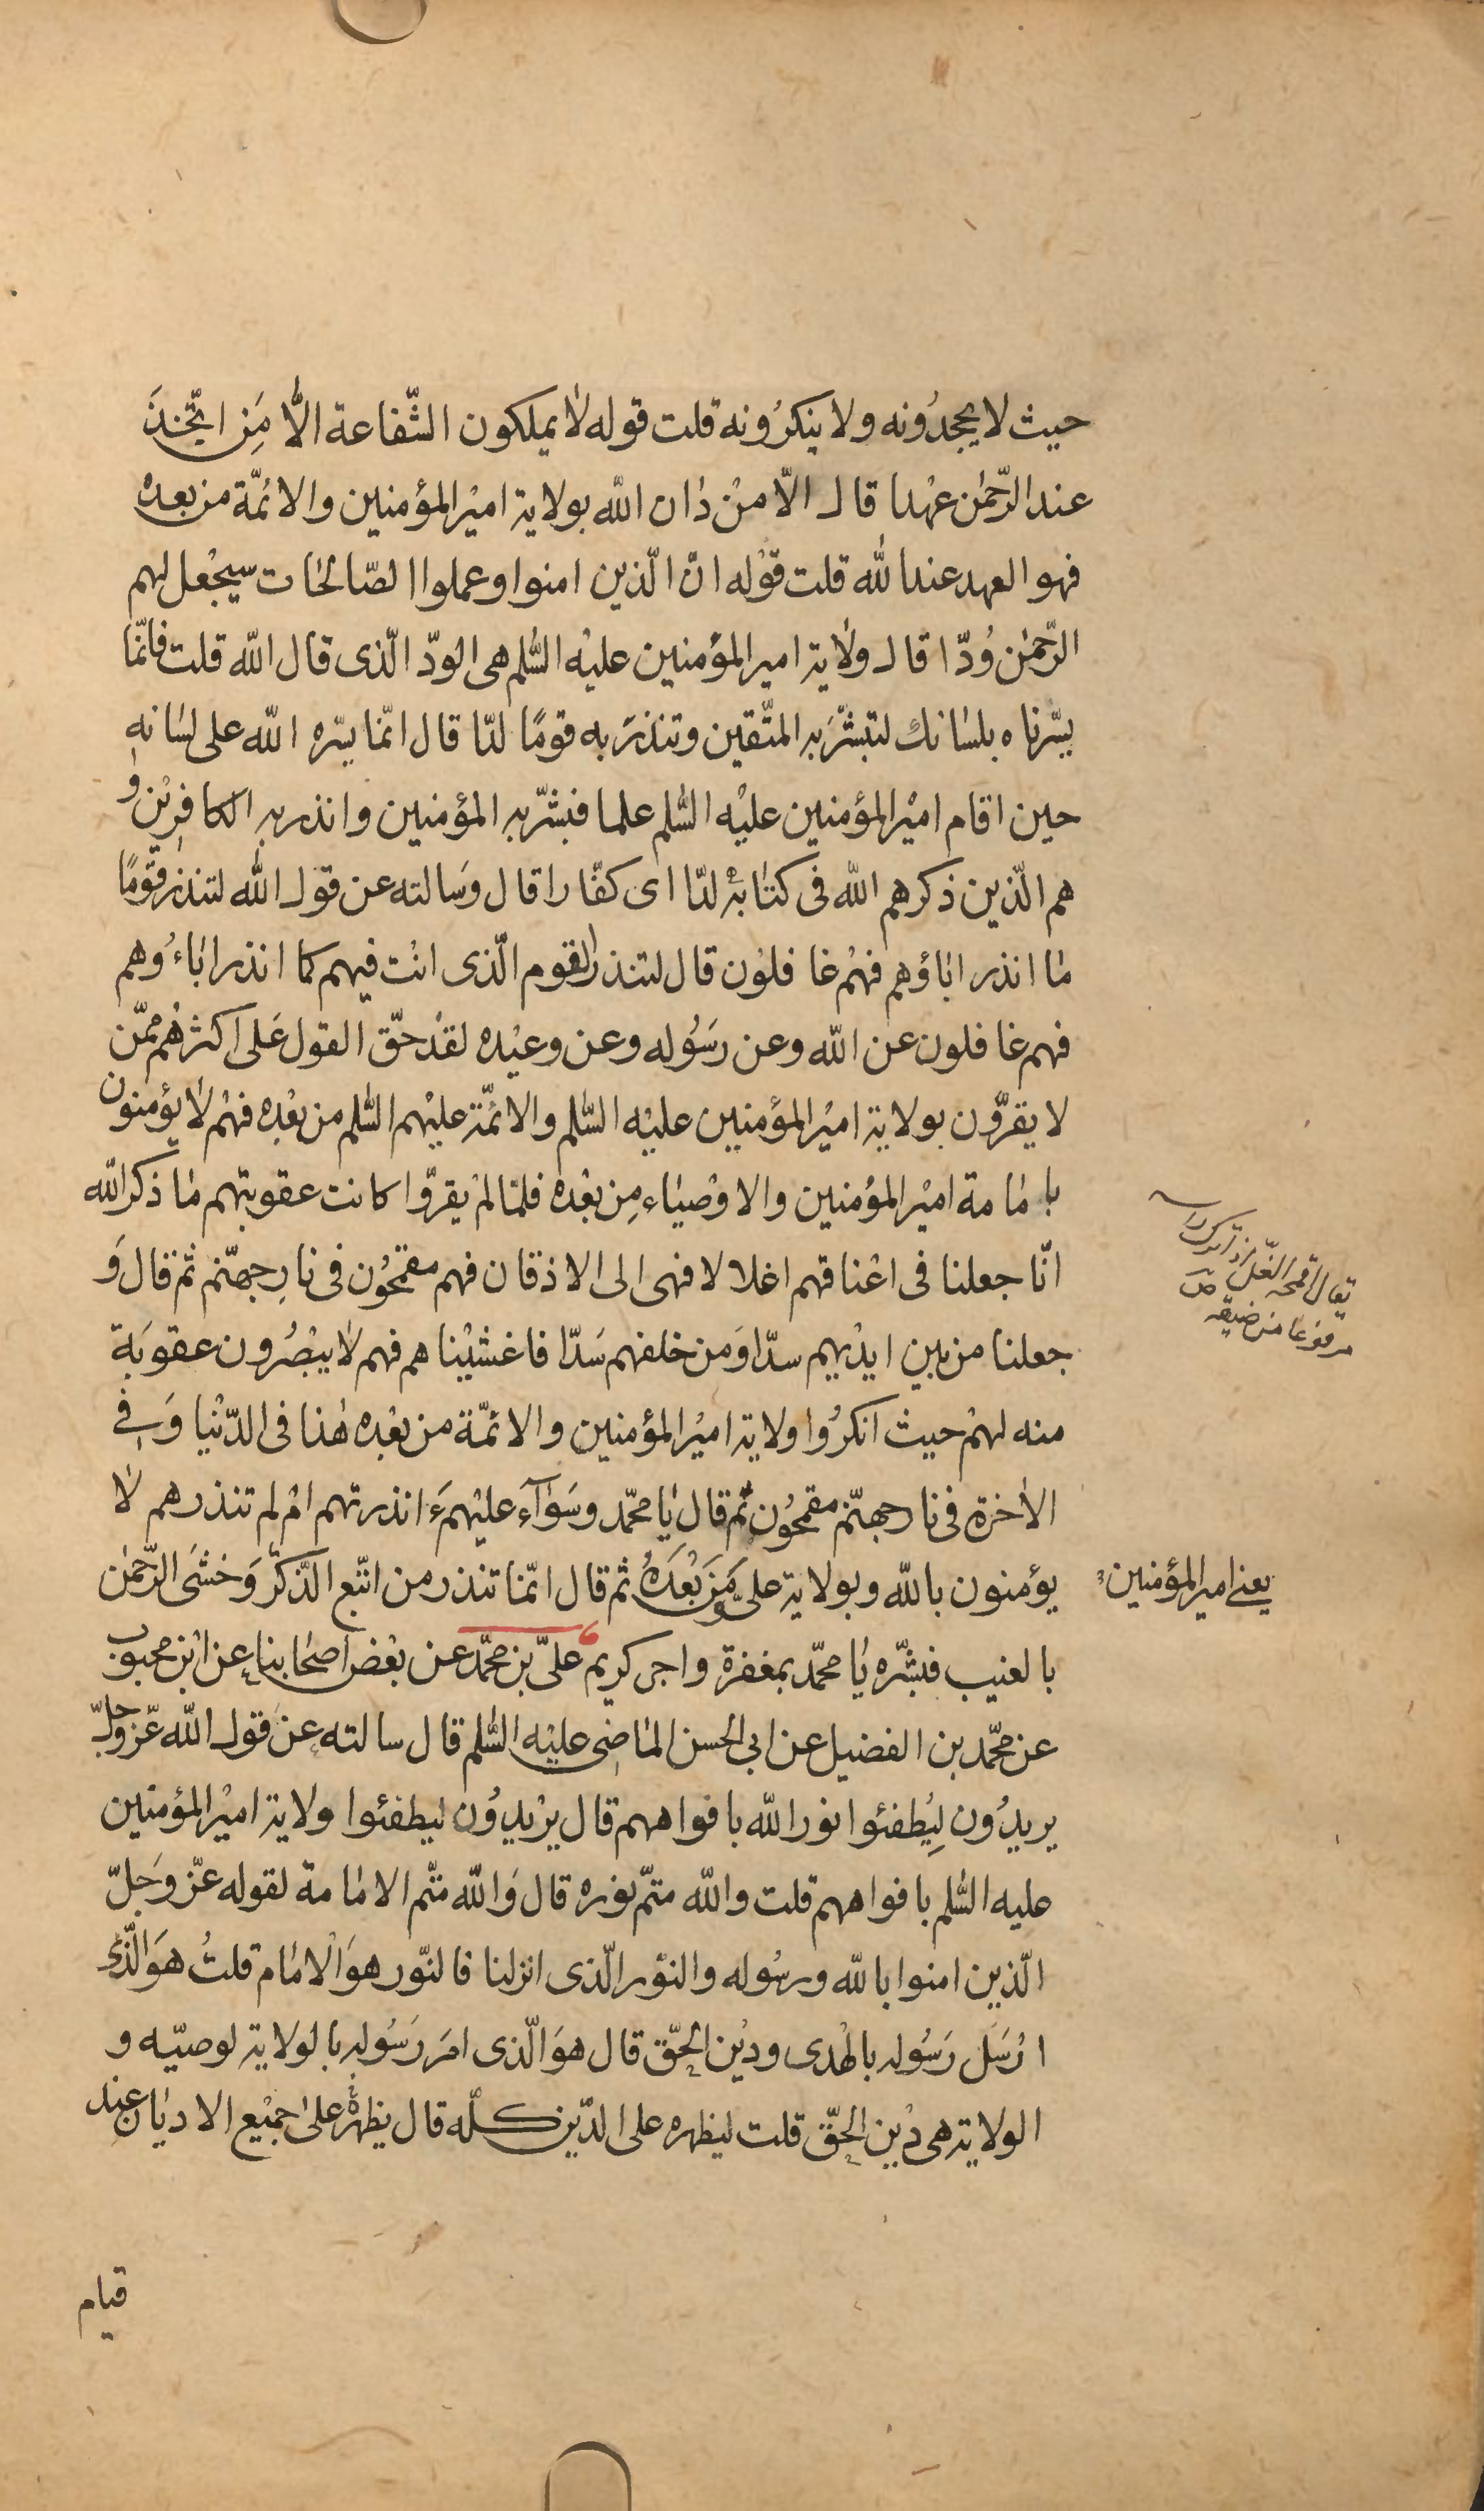 حيث لا يجحدُونه ولا ينكرُونه قلت قوله لا يملكون الشّفاعة الّا مَنِ اتّخذَ
عند الرّحمٰن عهدا قال الّا منْ دان اللّه بولاية اميْر المؤمنين والائمّة من بعده
فهو العهد عند اللّه قلت قوْله انّ الّذين امنوا وعملوا الصّالحات سيجْعل لهم
الرّحمٰن وُدّا قال ولاية امير المؤمنين عليْه السّلم هى الودّ الّذى قال اللّه قلت فانّما
يسّرناه بلسانك لتبشّرَ به المتّقين وتنذرَ به قومًا لدّا قال انّما يسّره اللّه على لسانهِ
حين اقام اميْر المؤمنين عليْه السّلم علما فبشّر به المؤمنين وانذر به الكافرِيْن وُ
هم الّذين ذكرهم اللّه فى كتابهٖ لدّا اى كفّارا قال وسَالته عن قول اللّه لتنذر قوْمًا
ما انذر اباؤهم فهمْ غافلوْن قال لتنذر القوم الّذى انْت فيهم كما انذر اباءُوهم
فهم غافلون عن اللّه وعن رسُوله وعن وعيْده لقدْ حقّ القول عَلى اكثرهُم ممّن
لا يقرّون بولاية اميْر المؤمنين عليْه السّلم والائمّة عليْهم السّلم من بعْده فهمْ لا يؤمنون
بامامة اميْر المؤمنين والاوْصياء مِن بعْده فلمّا لمْ يقرّوا كانت عقوبتهم ما ذكر اللّه
انّا جعلنا فى اعْناقهم اغلالا فهى الى الاذقان فهم مقمحُون فى نارِ جهنّم ثم قال وَ
جعلنا من بين ايدْيهم سدّا وَمن خلفهم سَدّا فاغشيْناهم فهم لا يبْصُرون عقوبَة
منه لهمْ حيث انكرُوا ولاية اميْر المؤمنين والائمّة من بعْده هٰذا فى الدّنْيا وَفى
الاٰخرة فى نار جهنّم مقمحُون ثم قال يا محمّد وسَوآء عليْهمَ ءانذرتهم امْ لم تنذرهم لا
يؤمنون باللّه وبولاية علىّ ومَنْ بعْدَهُ ثم قال انّما تنذر من اتّبع الذّكرَ وَخشَى الرّحمٰن
يعنے امير المؤمنين
بالغيب فبشّره يا محمّد بمغفرة واجر كريم علىّ بن محمّد عن بعْض اصْحابنا عن ابْن محبوب
عن محمّد بن الفضيل عن ابى الحسن الماضى عليْه السّلم قال سالته عن قول اللّه عزّ وجلّ
يريدُون لِيُطفئوا نور اللّه بافواههم قال يرْيدوُن ليطفئوا ولاية اميْر المؤمنين
عليه السّلم بافواههم قلت واللّه متمّ نوره قال وَاللّه متّم الامامة لقوله عزّ وَجلّ
الّذين امنوا باللّه ورسُوله والنوْر الّذى انزلنا فالنّور هوَ الْامام قلتُ هوَ الّذى
ارْسَل رَسُوله بالهْدى وديْن الحقّ قال هوَ الّذى امَر رَسُوله بالولاية لوصيّه و
الولاية هى ديْن الحقّ قلت ليظهره على الدّين كلّه قال يظهرهٗ علىٰ جميْع الاديان عِند
قيام